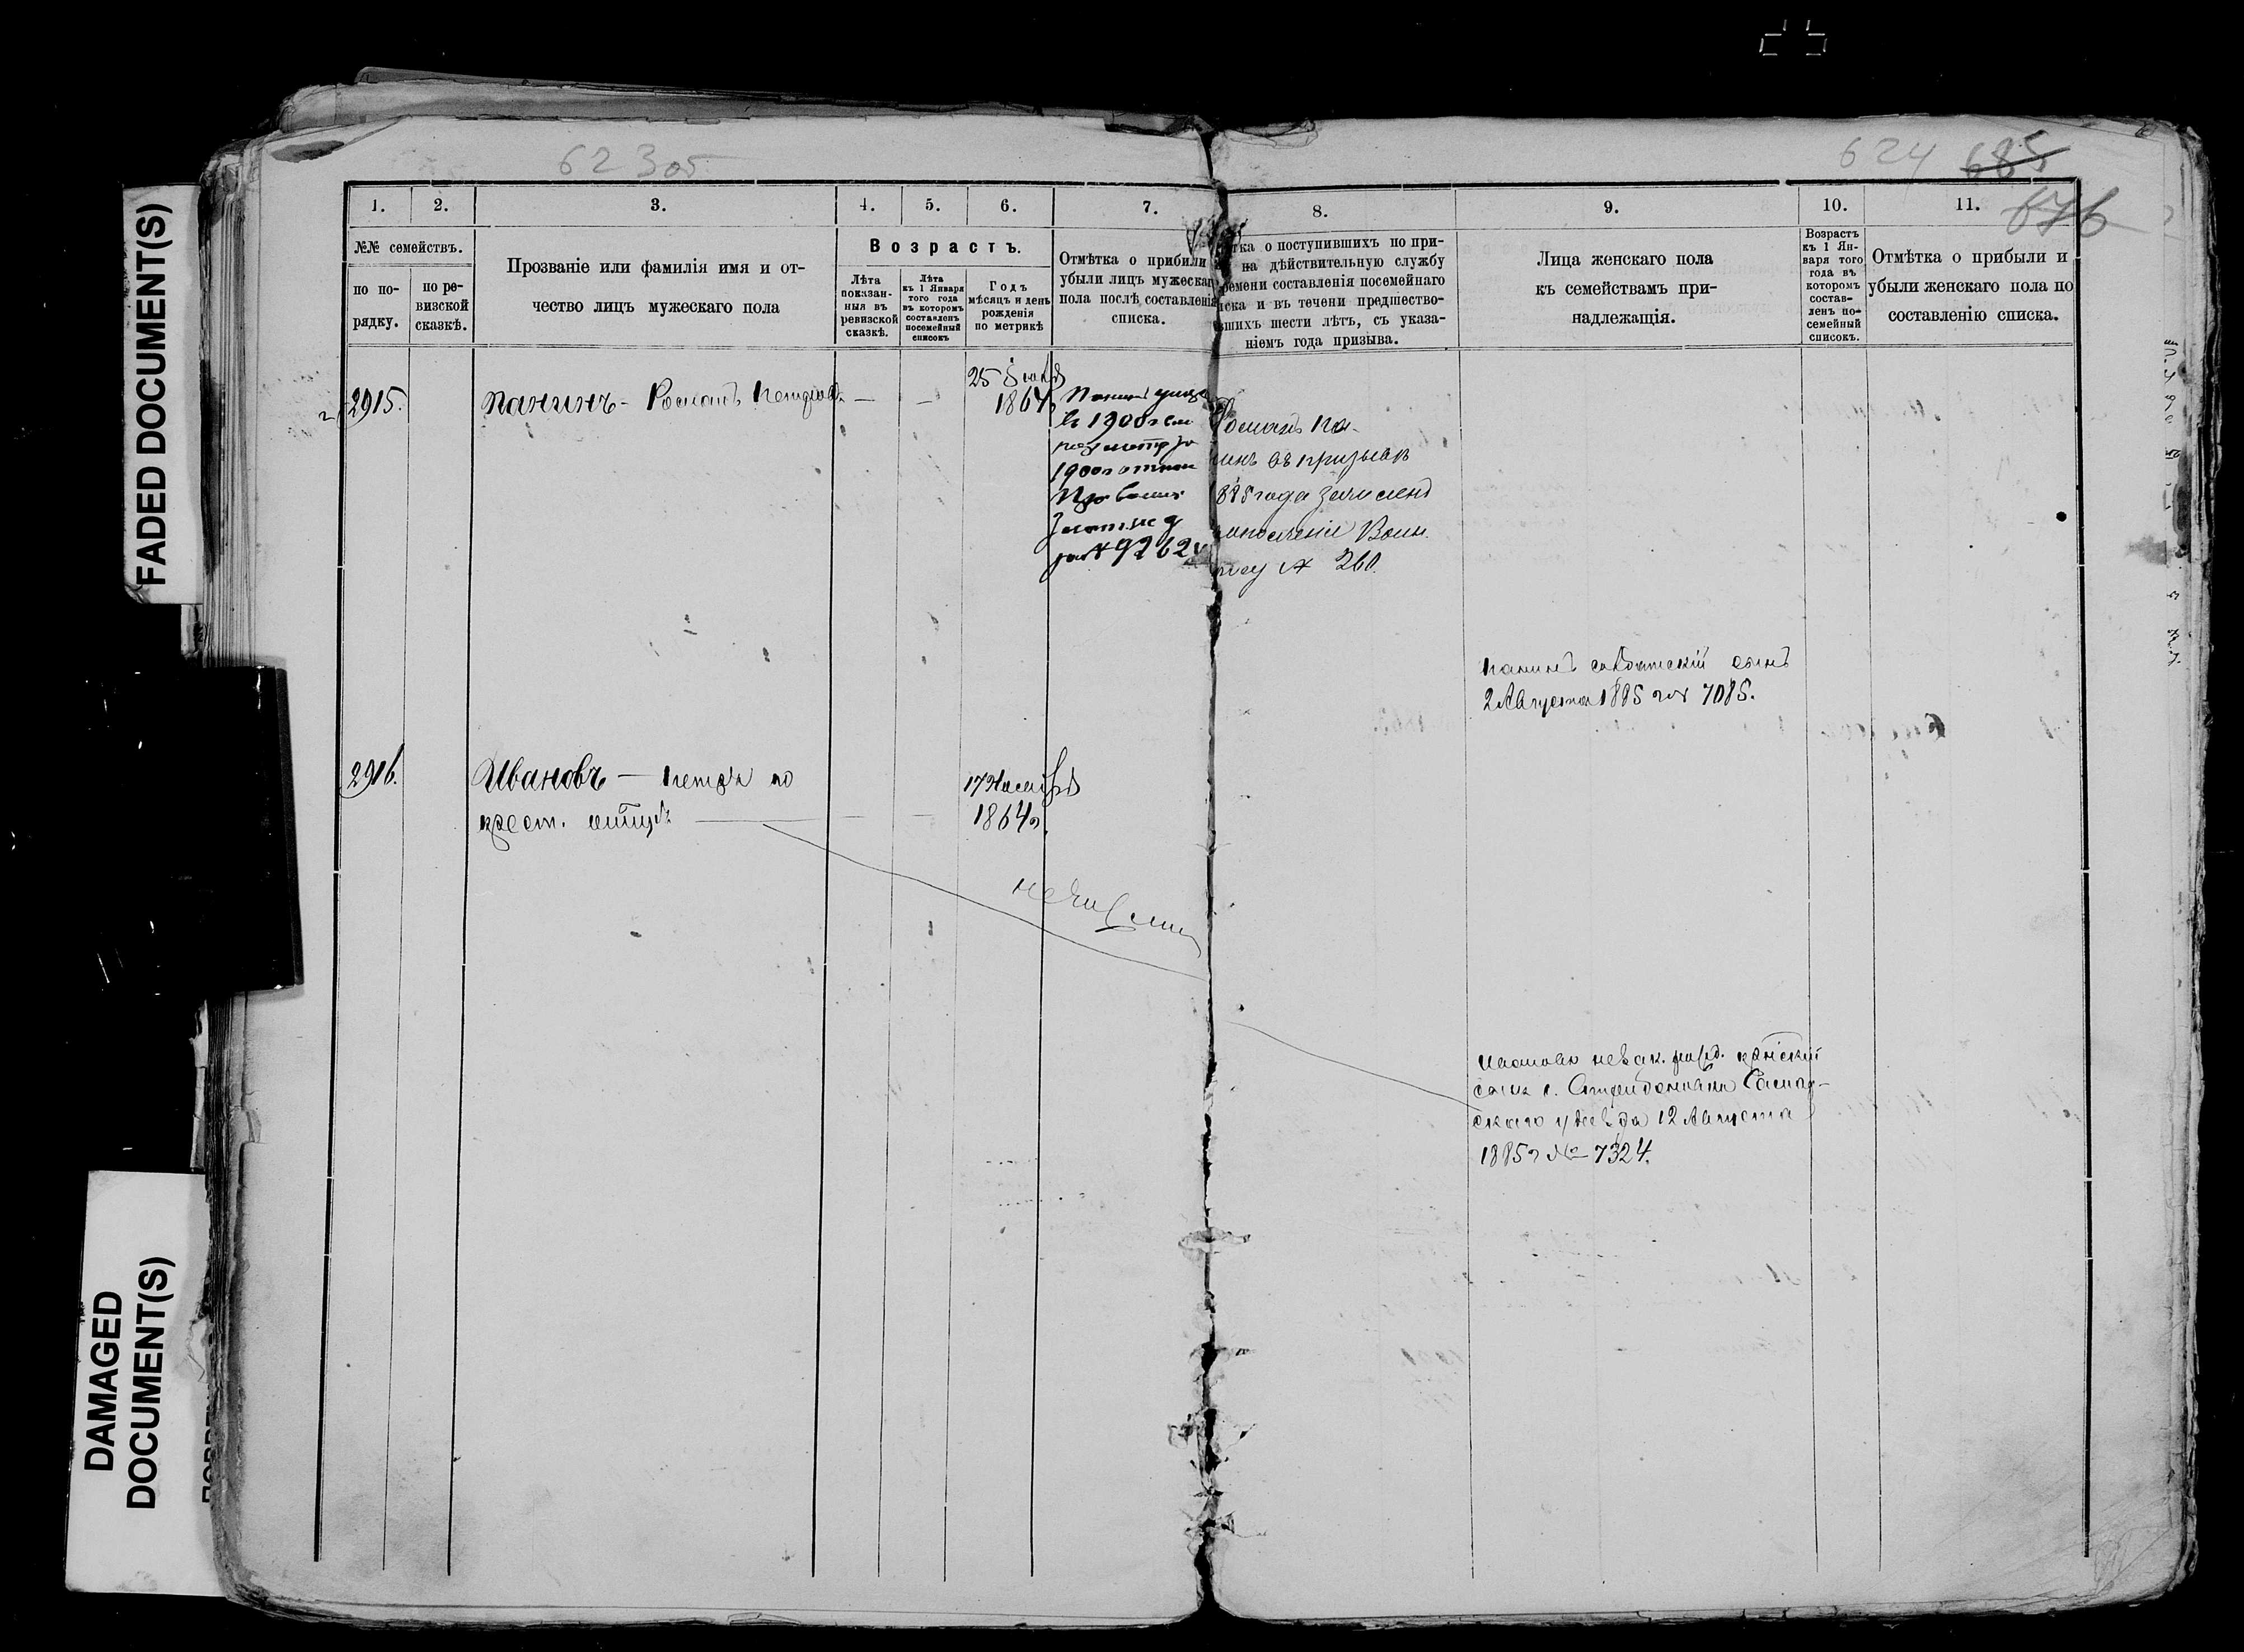 FADED DOCUMENT(S)
DAMAGED
DOCUMENT(S)
623 об
624 685
676
1. 2. 3. 4. 5. 6. 7. 8. 9. 10. 11.
№№ семействъ.
по по-
рядку.
по ре-
визской
сказкѣ.
Прозваніе или фамилія имя и от-
чество лицъ мужескаго пола
Возрастъ.
Лѣта
показан-
ныя въ
ревизской
сказкѣ.
Лѣта
къ 1 Января
того года
въ которомъ
составленъ
посемейный
списокъ
Годъ
мѣсяцъ и день
рожденія
по метрикѣ
Отмѣтка о прибыли
убыли лицъ мужескаго
пола послѣ составленія
списка.
тка о поступившихъ по при-
на дѣйствительную службу
ремени составленія посемейнаго
иска и въ течени предшество-
вшихъ шести лѣтъ, съ указа-
ніемъ года призыва.
Лица женскаго пола
къ семействамъ при-
надлежащія.
Возрастъ
къ 1 Ян-
варя того
года въ
которомъ
состав-
ленъ по-
семейный
списокъ.
Отмѣтка о прибыли и
убыли женскаго пола по
составленію списка.
2915.
Панинъ - Романъ Петровъ — —
25
1864
въ 1900
1900
№ 9262
Романъ Па-
нинъ въ призывъ
885 года зачисленъ
ополченіе
№ 260.
Панинъ солдатскій сынъ
2 Августа 1885 г № 7085.
2916.
Ивановъ — Петръ по
крест. отцу — — —
17 Ноября
1864 г.
Ивановъ незак. рожд.
Августа
уѣзда 12 Августа
1885 г № 7324.